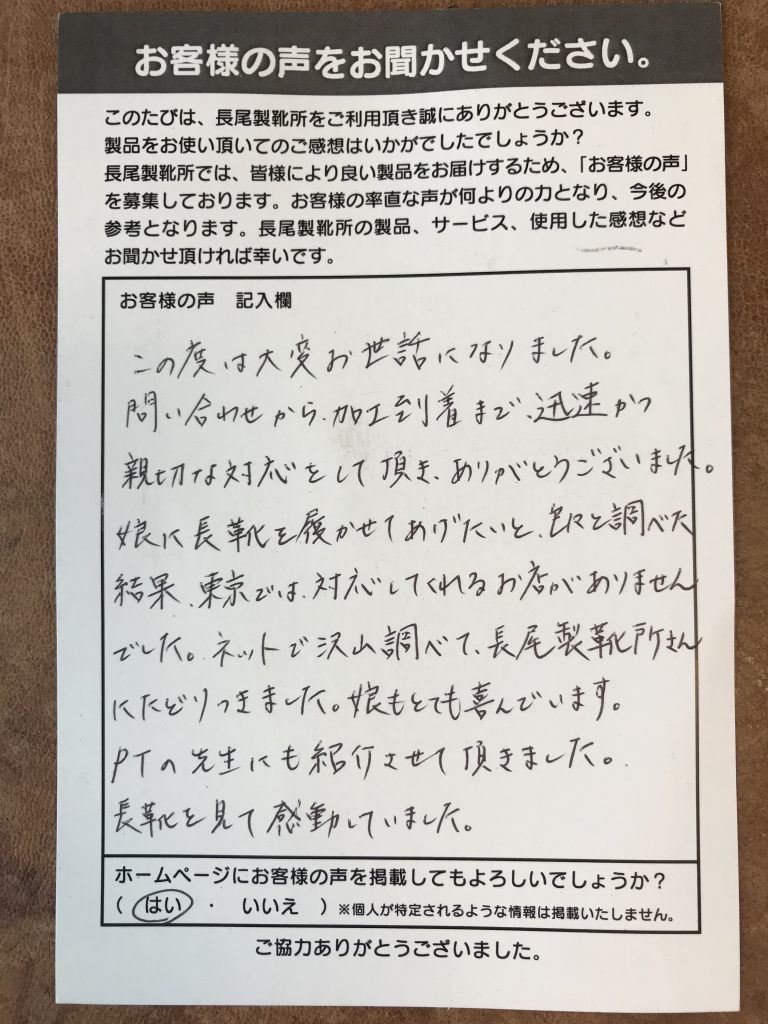 お客様の声をお聞かせください。
このたびは、長尾製靴所をご利用頂き誠にありがとうございます。
製品をお使い頂いてのご感想はいかがでしたでしょうか？
長尾製靴所では、皆様により良い製品をお届けするため、「お客様の声」
を募集しております。お客様の率直な声が何よりの力となり、今後の
参考となります。長尾製靴所の製品、サービス、使用した感想など
お聞かせ頂ければ幸いです。
お客様の声　記入欄
この度は大変お世話になりました。
問い合わせから、加工到着まで、迅速かつ
親切な対応をして頂き、ありがとうございました。
娘に長靴を履かせてあげたいと、色々と調べた
結果、東京では、対応してくれるお店がありません
でした。ネットで沢山調べて、長尾製靴所さん
にたどりつきました。娘もとても喜んでいます。
PTの先生にも紹介させて頂きました。
長靴を見て感動していました。
ホームページにお客様の声を掲載してもよろしいでしょうか？
（　はい　・　いいえ　）※個人が特定されるような情報は掲載いたしません。
ご協力ありがとうございました。